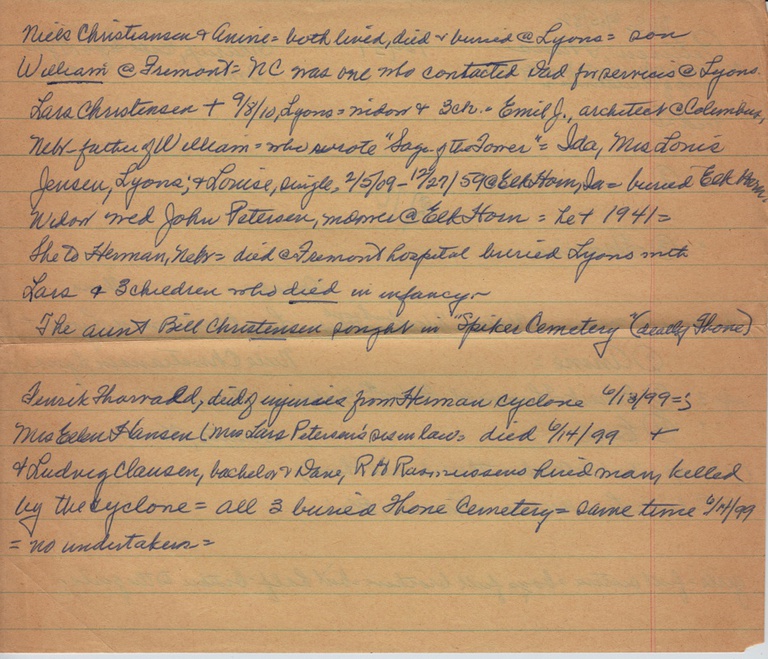 Niels Christiansen & Anine = both lived, died & buried @ Lyons = son
William @ Fremont = NC was one who contacted Dad for services @ Lyons.
Lars Christensen + 9/8/10, Lyons = widow & 3 ch. = Emil J., architect @ Columbus,
Nebr - father of William = who wrote "Saga of the Tower" = Ida, Mrs Louis
Jensen, Lyons; & Louise, single, 2/5/09 - 12/27/59 @ Elk Horn, Ia = buried Elk Horn.
Widow wed John Petersen, @ Elk Horn = he + 1941 =
She to Herman, Nebr = died @ Fremont hospital buried Lyons with
Lars & 3 children who died in infancy -
The aunt Bill Christensen sought in "Spiker Cemetery" (actually Thone)
Henrik Thorvald, died of injuries from Herman cyclone 6/13/99 = ;
Mrs Ellen Hansen (Mrs Lars Petersen's sis in law = died 6/14/99 +
& Ludvig Clausen, bachelor & Dane, R H Rasmussens hired man, killed
by the cyclone = all 3 buried Thone Cemetery = same time 6/14/99
= no undertakers =